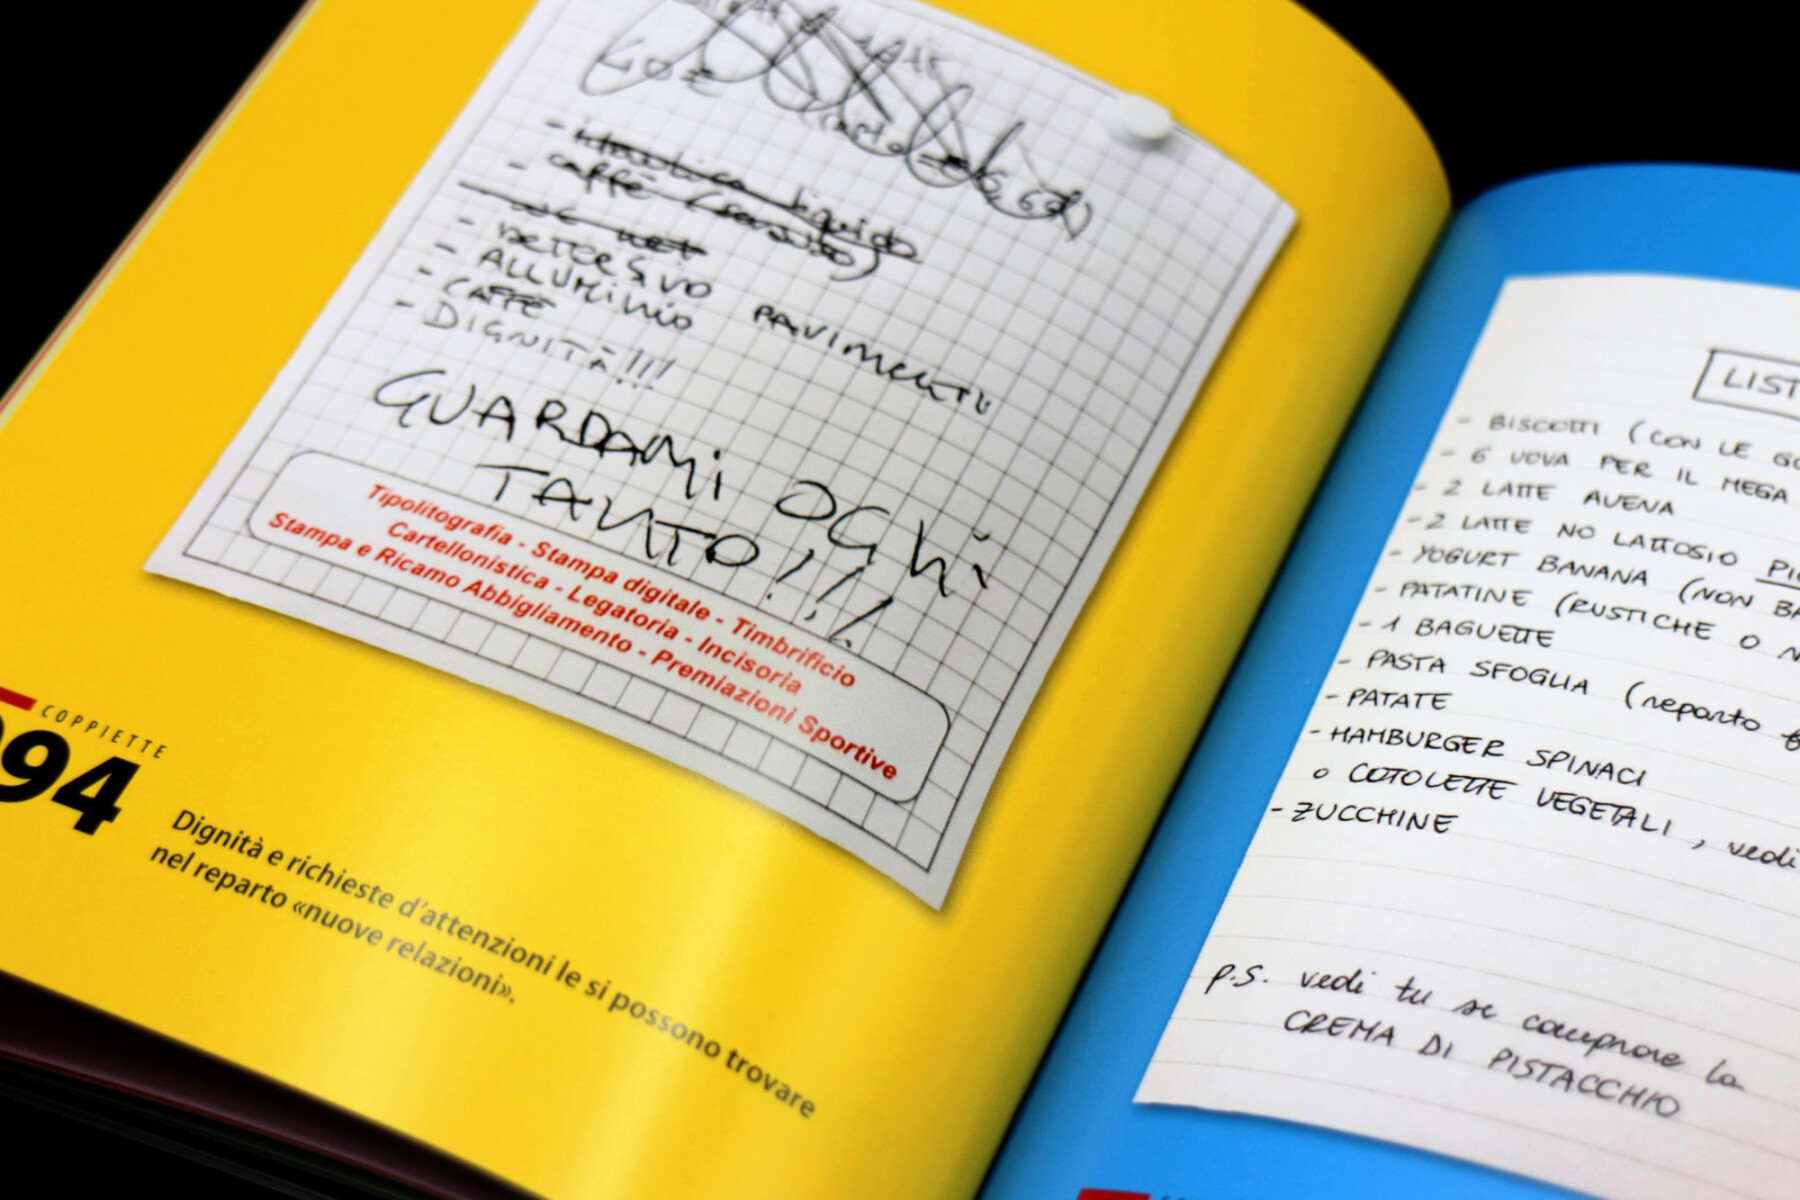 - caffè (sensuso)
- DETERSIVO PAVIMENTI
- ALLUMINIO
- CAFFÈ
- DIGNITÀ!!!
GUARDAMI OGNI
TANTO!!!
Tipolitografia - Stampa digitale - Timbrificio
Cartellonistica - Legatoria - Incisoria
Stampa e Ricamo Abbigliamento - Premiazioni Sportive
COPPIETTE
94
Dignità e richieste d'attenzioni le si possono trovare
nel reparto «nuove relazioni».
LIST
- BISCOTTI (CON LE GO
- 6 UOVA PER IL MEGA
- 2 LATTE AVENA
- 2 LATTE NO LATTOSIO
- YOGURT BANANA (NON BA
- PATATINE (RUSTICHE O
- 1 BAGUETTE
- PASTA SFOGLIA (reparto
- PATATE
- HAMBURGER SPINACI
o COTOLETTE VEGETALI, vedi
- ZUCCHINE
p.s. vedi tu se comprare la
CREMA DI PISTACCHIO